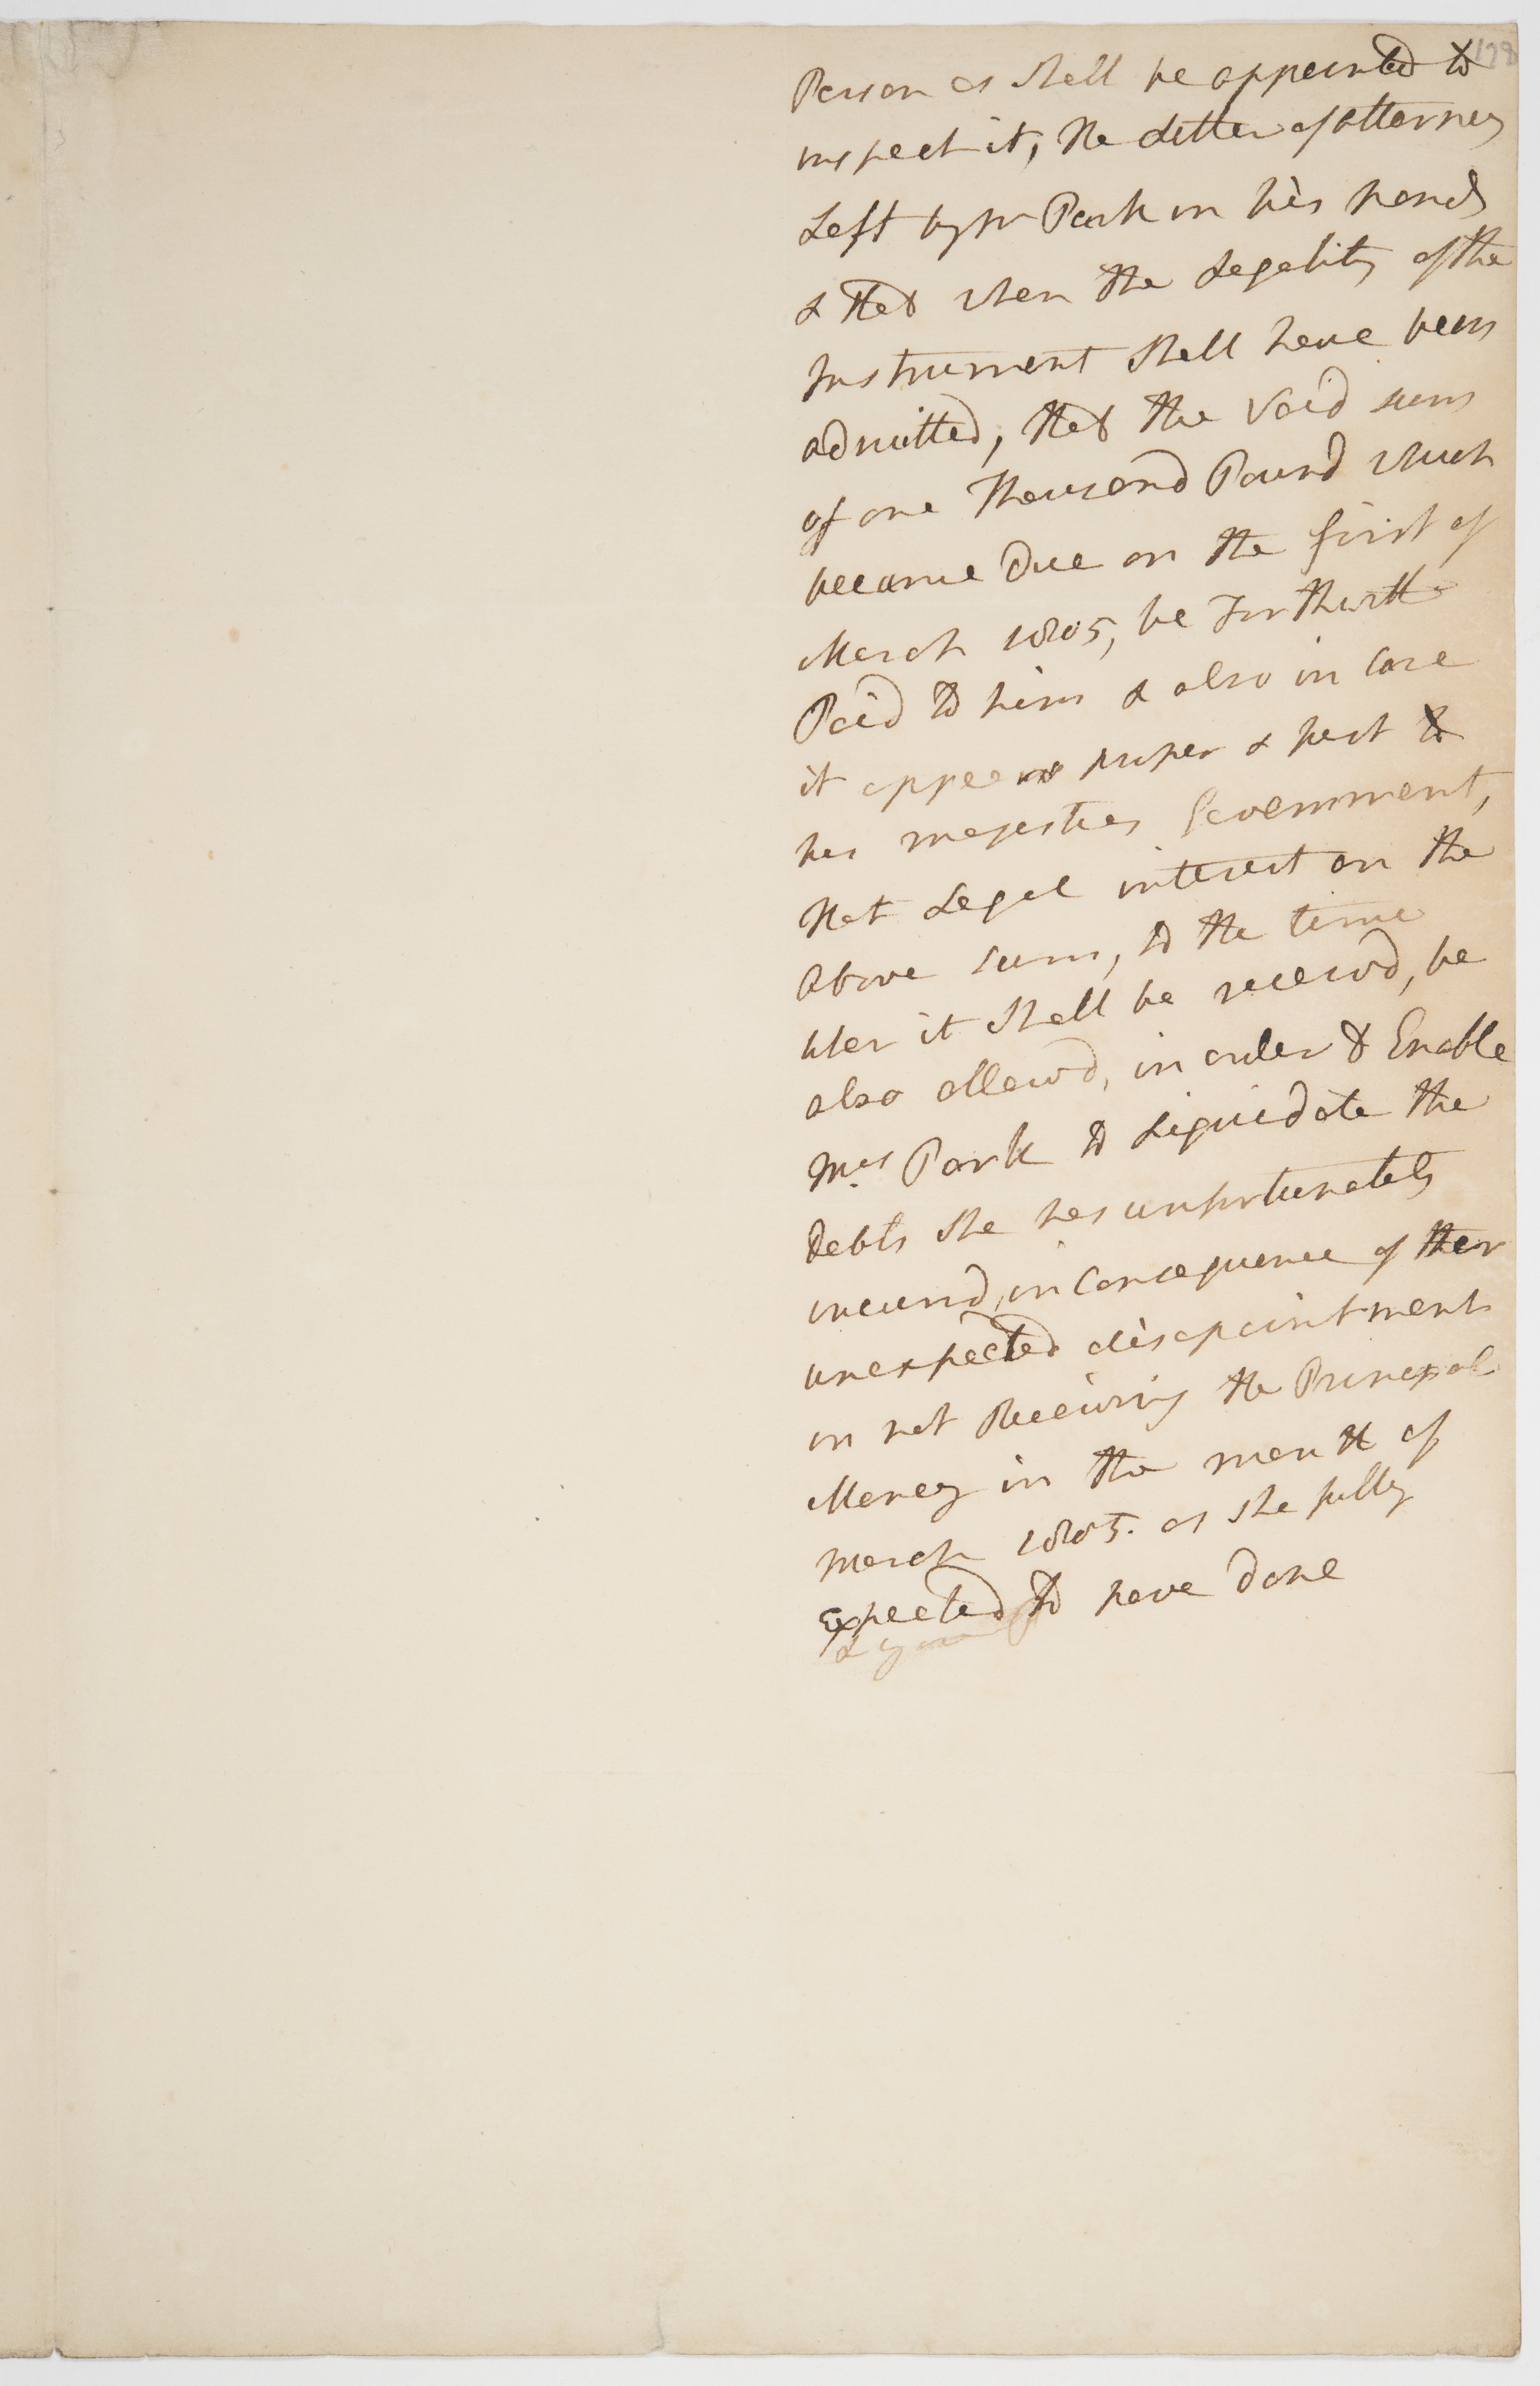 178
Person as shall be appointed to
inspect it, the Letter of Attorney
Left by Mr Park in his hands
& that when the Legality of the
Instrument shall have been
admitted, that the said sum
of one Thousand Pound which
became Due on the first of
March 1805, be Forthwith
Paid to him & also in Case
it appears proper & just to
his majesties Government,
that Legal interest on the
Above sum, to the time
when it shall be receivd, be
also allowd, in order to Enable
Mrs Park to Liquidate the
Debts she has unfortunately
incurrd, in Consequence of their
unexpected disapointment
in not Receiving the Principal
Money in the month of
March 1805. as she fully
Expected to have done